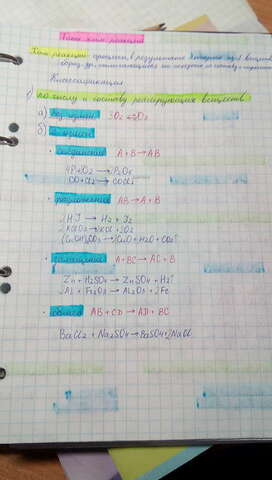 Типы хим. реакций
Хим. реакции - процессы, в результате которых из одних веществ
образ. др., отличающиеся от исходных по составу и строению
Классификация
1) по числу и составу реагирующих веществ
а)
3O₂ ⇄ 2O₃
б)
· соединения A + B → AB
4P + 5O₂ → 2P₂O₅
CO + Cl₂ → COCl₂
· разложения AB → A + B
2HI → H₂ + I₂
2KClO₃ → 2KCl + 3O₂
(CuOH)₂CO₃ → 2CuO + H₂O + CO₂↑
· замещения A + BC → AC + B
Zn + H₂SO₄ → ZnSO₄ + H₂↑
2Al + Fe₂O₃ → Al₂O₃ + 2Fe
· обмена AB + CD → AD + BC
BaCl₂ + Na₂SO₄ → BaSO₄ + 2NaCl